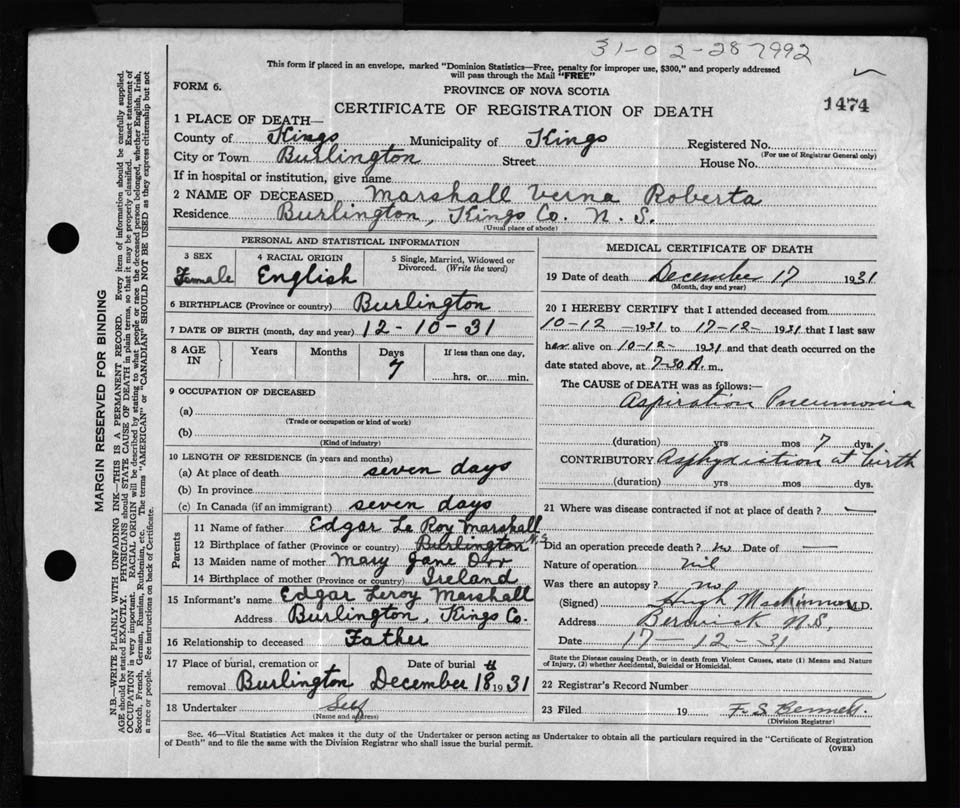 31-02-287992
This form if placed in an envelope, marked "Dominion Statistics—Free, penalty for improper use, $300," and properly addressed
will pass through the Mail "FREE"
FORM 6.
PROVINCE OF NOVA SCOTIA
CERTIFICATE OF REGISTRATION OF DEATH
1474
1 PLACE OF DEATH—
County of Kings Municipality of Kings Registered No.
(For use of Registrar General only)
City or Town Burlington Street House No.
If in hospital or institution, give name
2 NAME OF DECEASED Marshall Verna Roberta
Residence Burlington, Kings Co. N. S.
(Usual place of abode)
PERSONAL AND STATISTICAL INFORMATION
3 SEX Female 4 RACIAL ORIGIN English 5 Single, Married, Widowed or Divorced. (Write the word)
6 BIRTHPLACE (Province or country) Burlington
7 DATE OF BIRTH (month, day and year) 12-10-31
8 AGE IN Years Months Days 7 If less than one day, hrs. or min.
9 OCCUPATION OF DECEASED
(a)
(Trade or occupation or kind of work)
(b)
(Kind of industry)
10 LENGTH OF RESIDENCE (in years and months)
(a) At place of death seven days
(b) In province
(c) In Canada (if an immigrant) seven days
Parents
11 Name of father Edgar Le Roy Marshall
12 Birthplace of father (Province or country) Burlington N.S
13 Maiden name of mother Mary Jane Orr
14 Birthplace of mother (Province or country) Ireland
15 Informant's name Edgar Leroy Marshall
Address Burlington, Kings Co.
16 Relationship to deceased Father
17 Place of burial, cremation or removal Burlington Date of burial December 18 1931
18 Undertaker Self
(Name and address)
MEDICAL CERTIFICATE OF DEATH
19 Date of death December 17 1931
(Month, day and year)
20 I HEREBY CERTIFY that I attended deceased from
10-12 —1931 to 17-12— 1931 that I last saw
her alive on 10-12— 1931 and that death occurred on the
date stated above, at 7-30 A. m.,
The CAUSE of DEATH was as follows:—
Aspiration Pneumonia
(duration) yrs mos 7 dys.
CONTRIBUTORY Asphyxiation at birth
(duration) yrs. mos. dys.
21 Where was disease contracted if not at place of death? —
Did an operation precede death? no Date of —
Nature of operation nil
Was there an autopsy? no
(Signed) Hugh MacKinnon M.D.
Address Berwick N.S.
Date 17-12-31
State the Disease causing Death, or in death from Violent Causes, state (1) Means and Nature
of Injury, (2) whether Accidental, Suicidal or Homicidal.
22 Registrar's Record Number
23 Filed 19 F. S Bennett.
(Division Registrar)
Sec. 46—Vital Statistics Act makes it the duty of the Undertaker or person acting as Undertaker to obtain all the particulars required in the "Certificate of Registration
of Death" and to file the same with the Division Registrar who shall issue the burial permit.
(OVER)
MARGIN RESERVED FOR BINDING
N.B.—WRITE PLAINLY WITH UNFADING INK—THIS IS A PERMANENT RECORD. Every item of information should be carefully supplied.
AGE should be stated EXACTLY. PHYSICIANS should STATE CAUSE OF DEATH in plain terms, so that it may be properly classified. Exact statement of
OCCUPATION is very important. RACIAL ORIGIN will be described by stating to what people or race the deceased person belonged, whether English, Irish,
Scotch, French, German, Russian, Ruthenian, etc. The terms "AMERICAN" or "CANADIAN" SHOULD NOT BE USED as they express citizenship but not
a race or people. See instructions on back of Certificate.